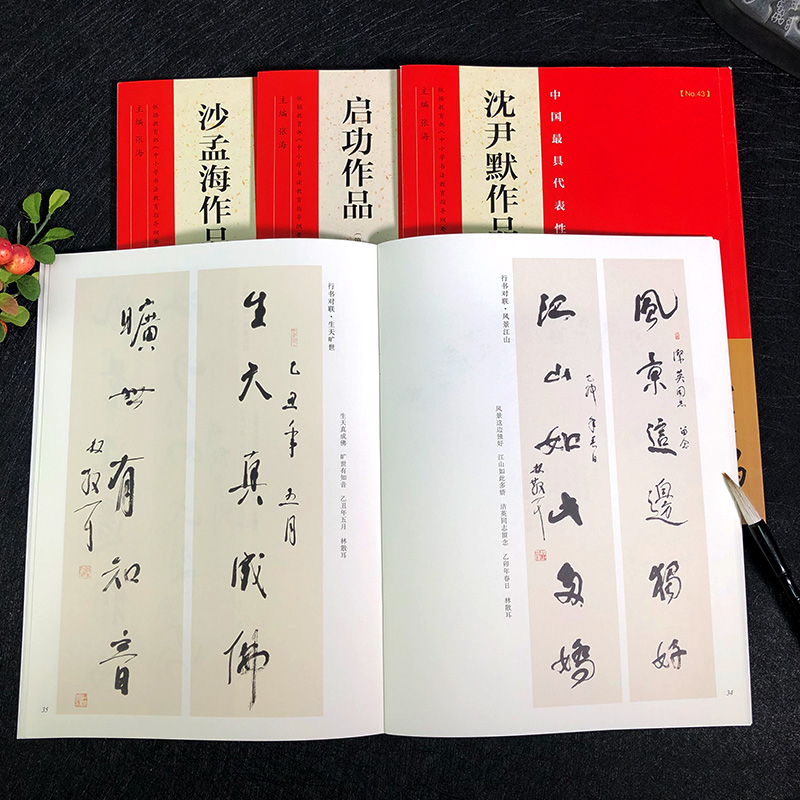 沙孟海作品
主编 张海
启功作品
主编 张海
沈尹默作品
主编 张海
中国最具代表性
【No.43】
行书对联·风景江山
風景這邊獨好
潔英同志 留念
江山如此多嬌
乙卯年春日
林散耳
风景这边独好 江山如此多娇 洁英同志留念 乙卯年春日 林散耳
34
行书对联·生天旷世
生天真成佛
乙丑年五月
曠世有知音
林散耳
生天真成佛 旷世有知音 乙丑年五月 林散耳
35